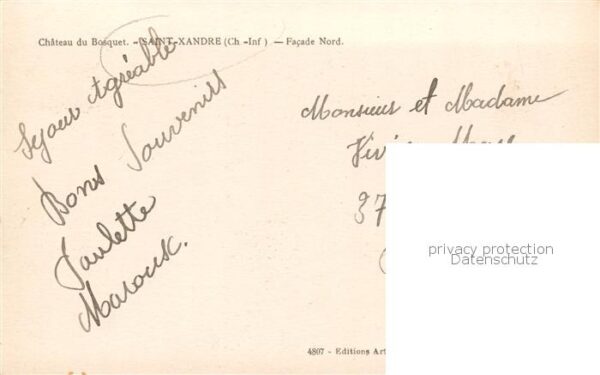 Château du Bosquet. - SAINT-XANDRE (Ch -Inf) — Façade Nord.
Sejour Agréable
Bons Souvenirs
Paulette
Monsieur et Madame
37
privacy protection
Datenschutz
4807 - Editions Art